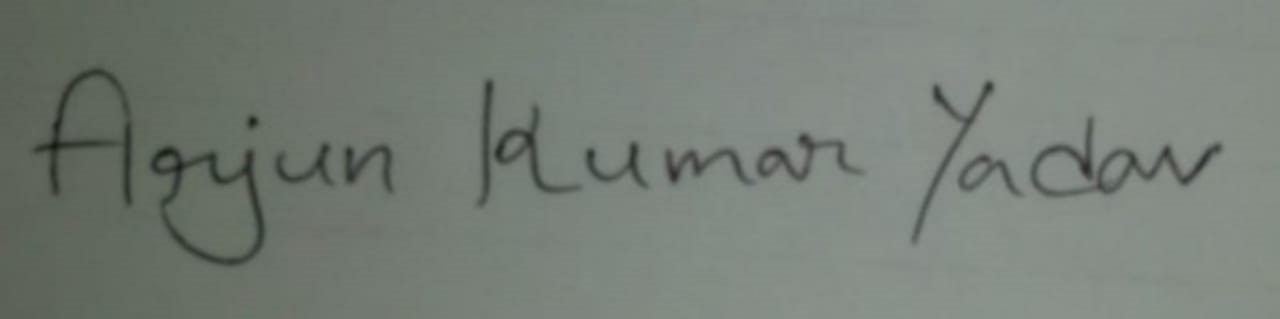 Arjun Kumar Yadav